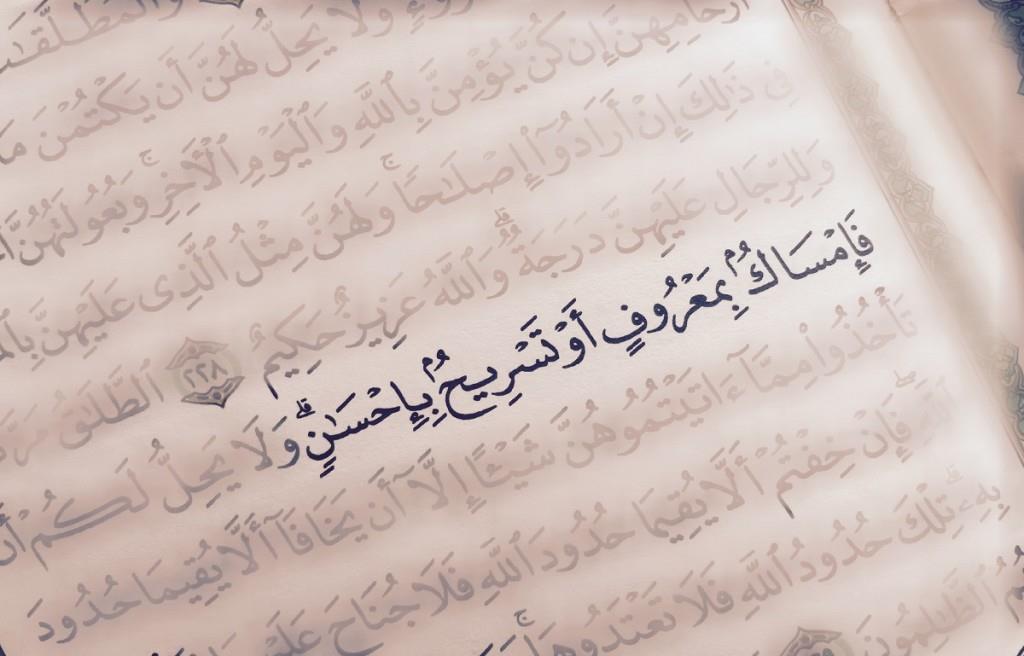 وَٱلْمُطَلَّقَـٰتُ
قُرُوٓءٍ وَلَا يَحِلُّ لَهُنَّ أَن يَكْتُمْنَ مَا
أَرْحَامِهِنَّ إِن كُنَّ يُؤْمِنَّ بِٱللَّهِ وَٱلْيَوْمِ ٱلْـَٔاخِرِ ۚ وَبُعُولَتُهُنَّ
فِى ذَٰلِكَ إِنْ أَرَادُوٓا۟ إِصْلَـٰحًا ۚ وَلَهُنَّ مِثْلُ ٱلَّذِى عَلَيْهِنَّ
وَلِلرِّجَالِ عَلَيْهِنَّ دَرَجَةٌ ۗ وَٱللَّهُ عَزِيزٌ حَكِيمٌ ٢٢٨ ٱلطَّلَـٰقُ
فَإِمْسَاكٌۢ بِمَعْرُوفٍ أَوْ تَسْرِيحٌۢ بِإِحْسَـٰنٍ ۗ وَلَا يَحِلُّ لَكُمْ أَن
تَأْخُذُوا۟ مِمَّآ ءَاتَيْتُمُوهُنَّ شَيْـًٔا إِلَّآ أَن يَخَافَآ أَلَّا يُقِيمَا حُدُودَ
ٱللَّهِ ۖ فَإِنْ خِفْتُمْ أَلَّا يُقِيمَا حُدُودَ ٱللَّهِ فَلَا جُنَاحَ
بِهِۦ ۗ تِلْكَ حُدُودُ ٱللَّهِ فَلَا تَعْتَدُوهَا ۚ
ٱلظَّـٰلِمُونَ